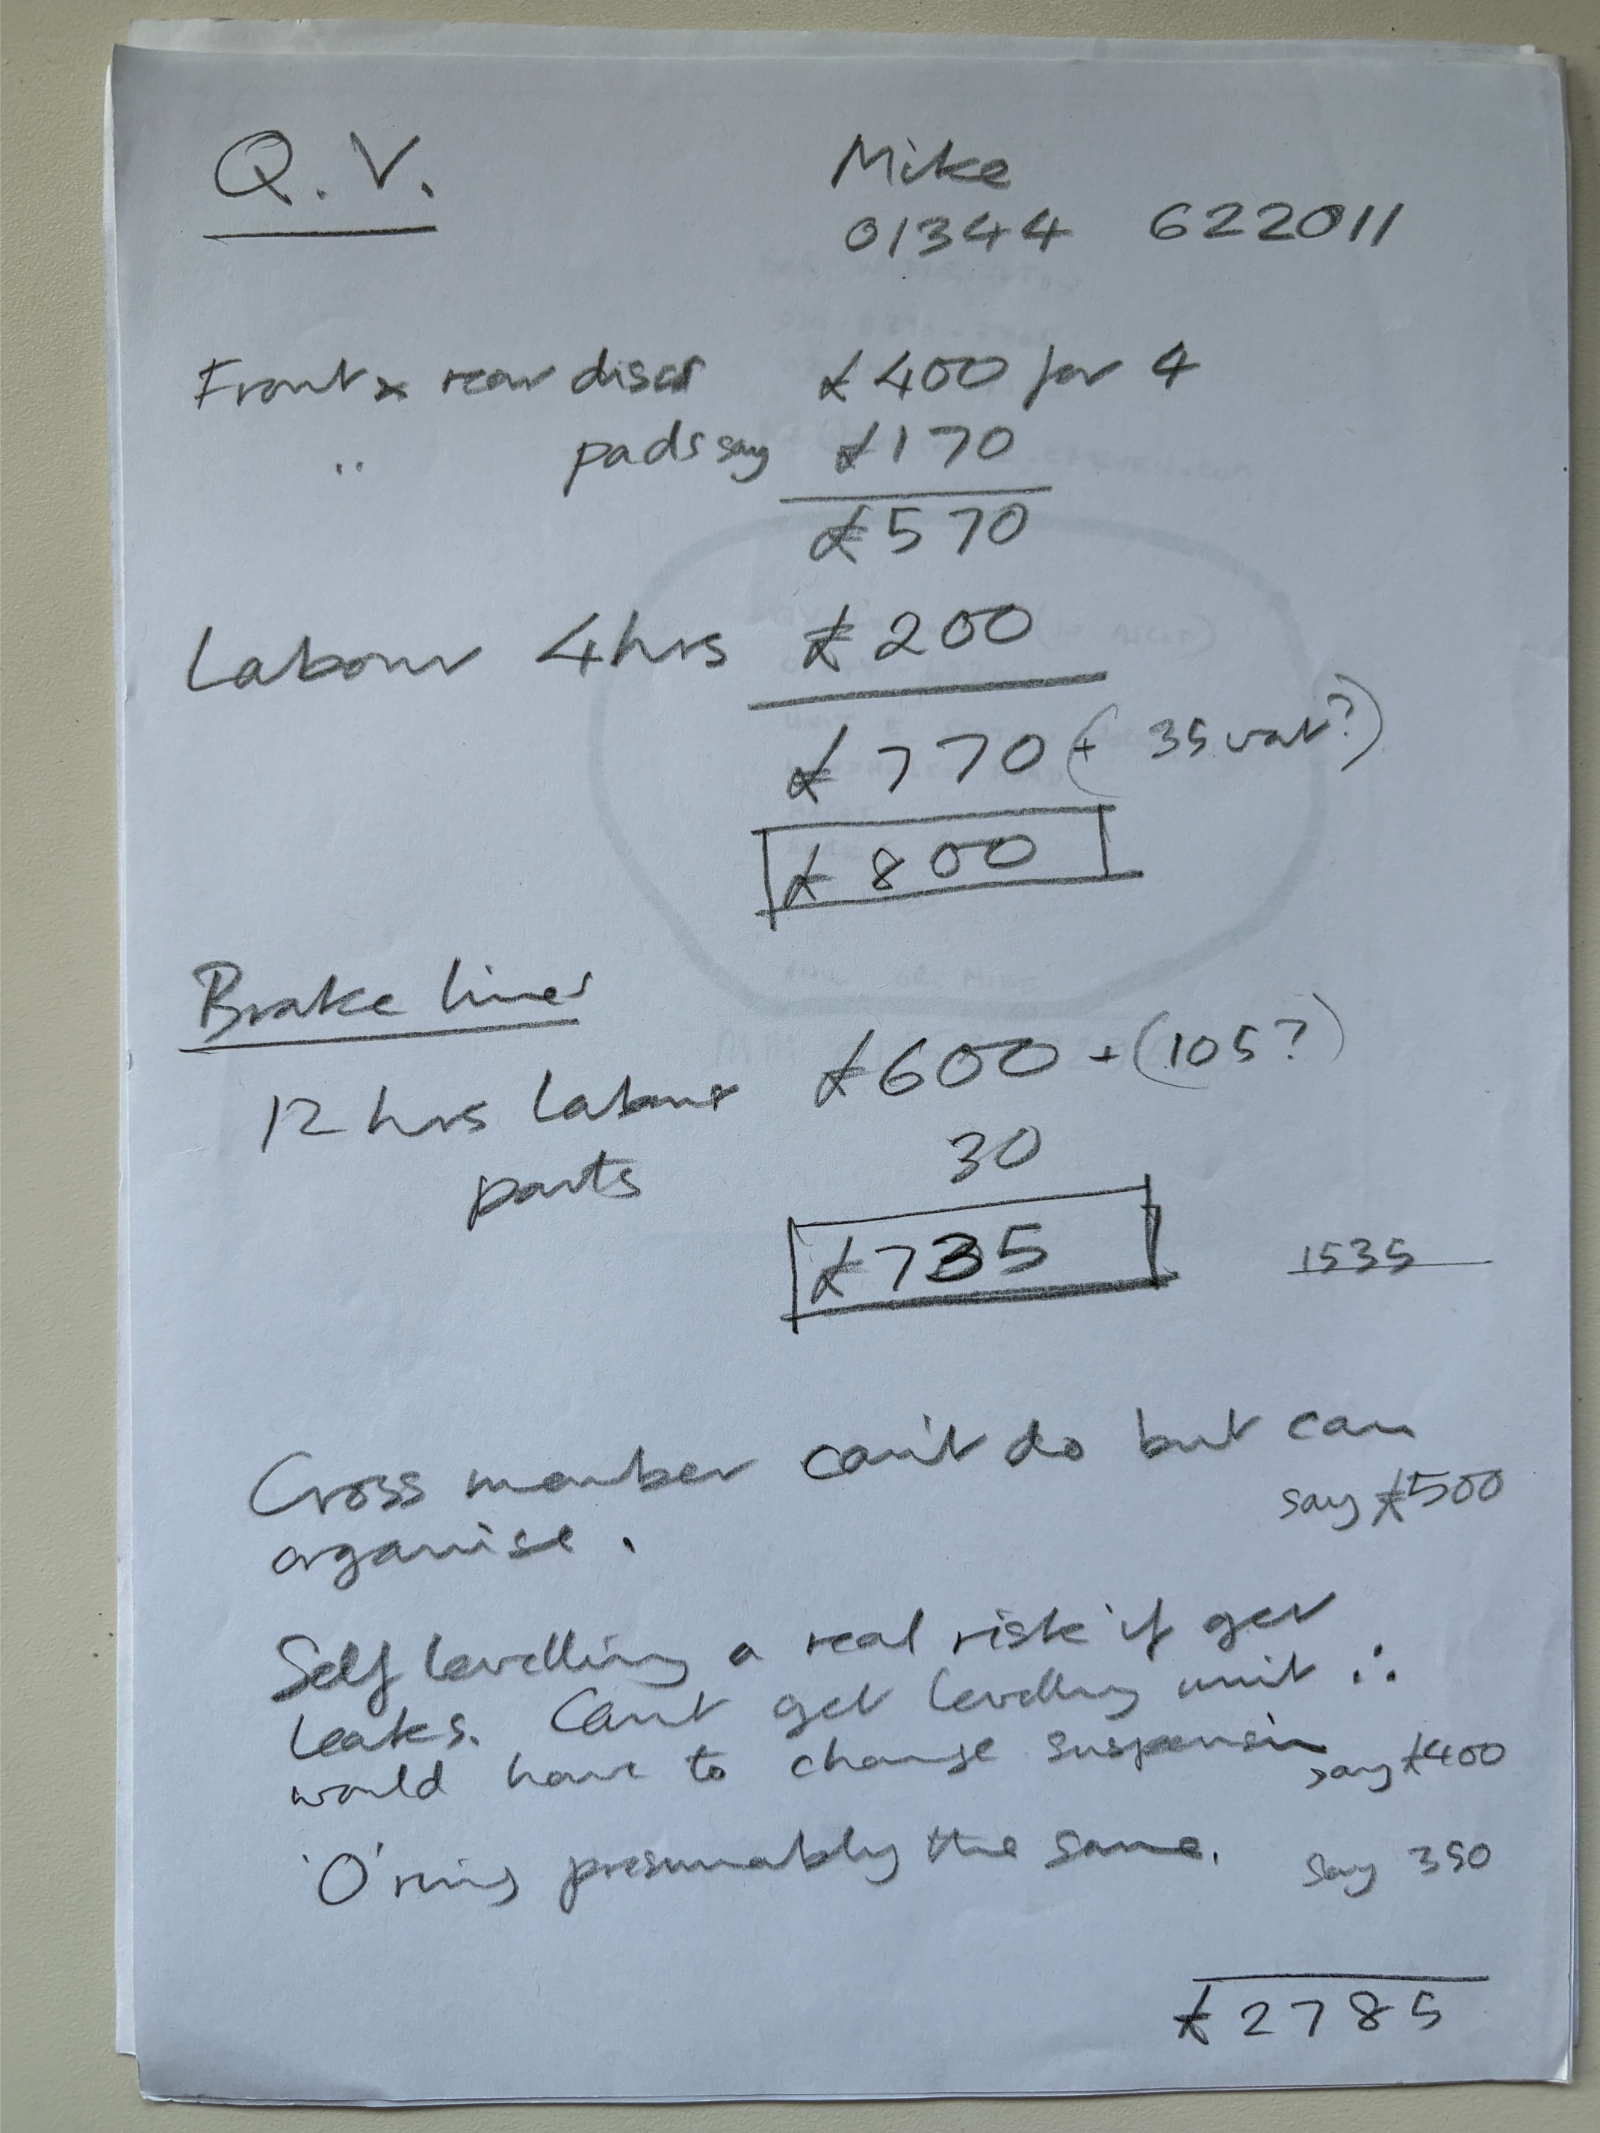 Q.V.
Mike
01344 622011
Front & rear discs £400 for 4
" pads say £170
£570
Labour 4hrs £200
£770 (+ 35 vat?)
£800
Brake lines
12 hrs labour £600 + (105?)
parts 30
£735 1535
Cross member can't do but can
organise. say £500
Self levelling a real risk if get
leaks. Can't get levelling unit ∴
would have to change suspension say £400
'O' ring presumably the same. say 350
£2785